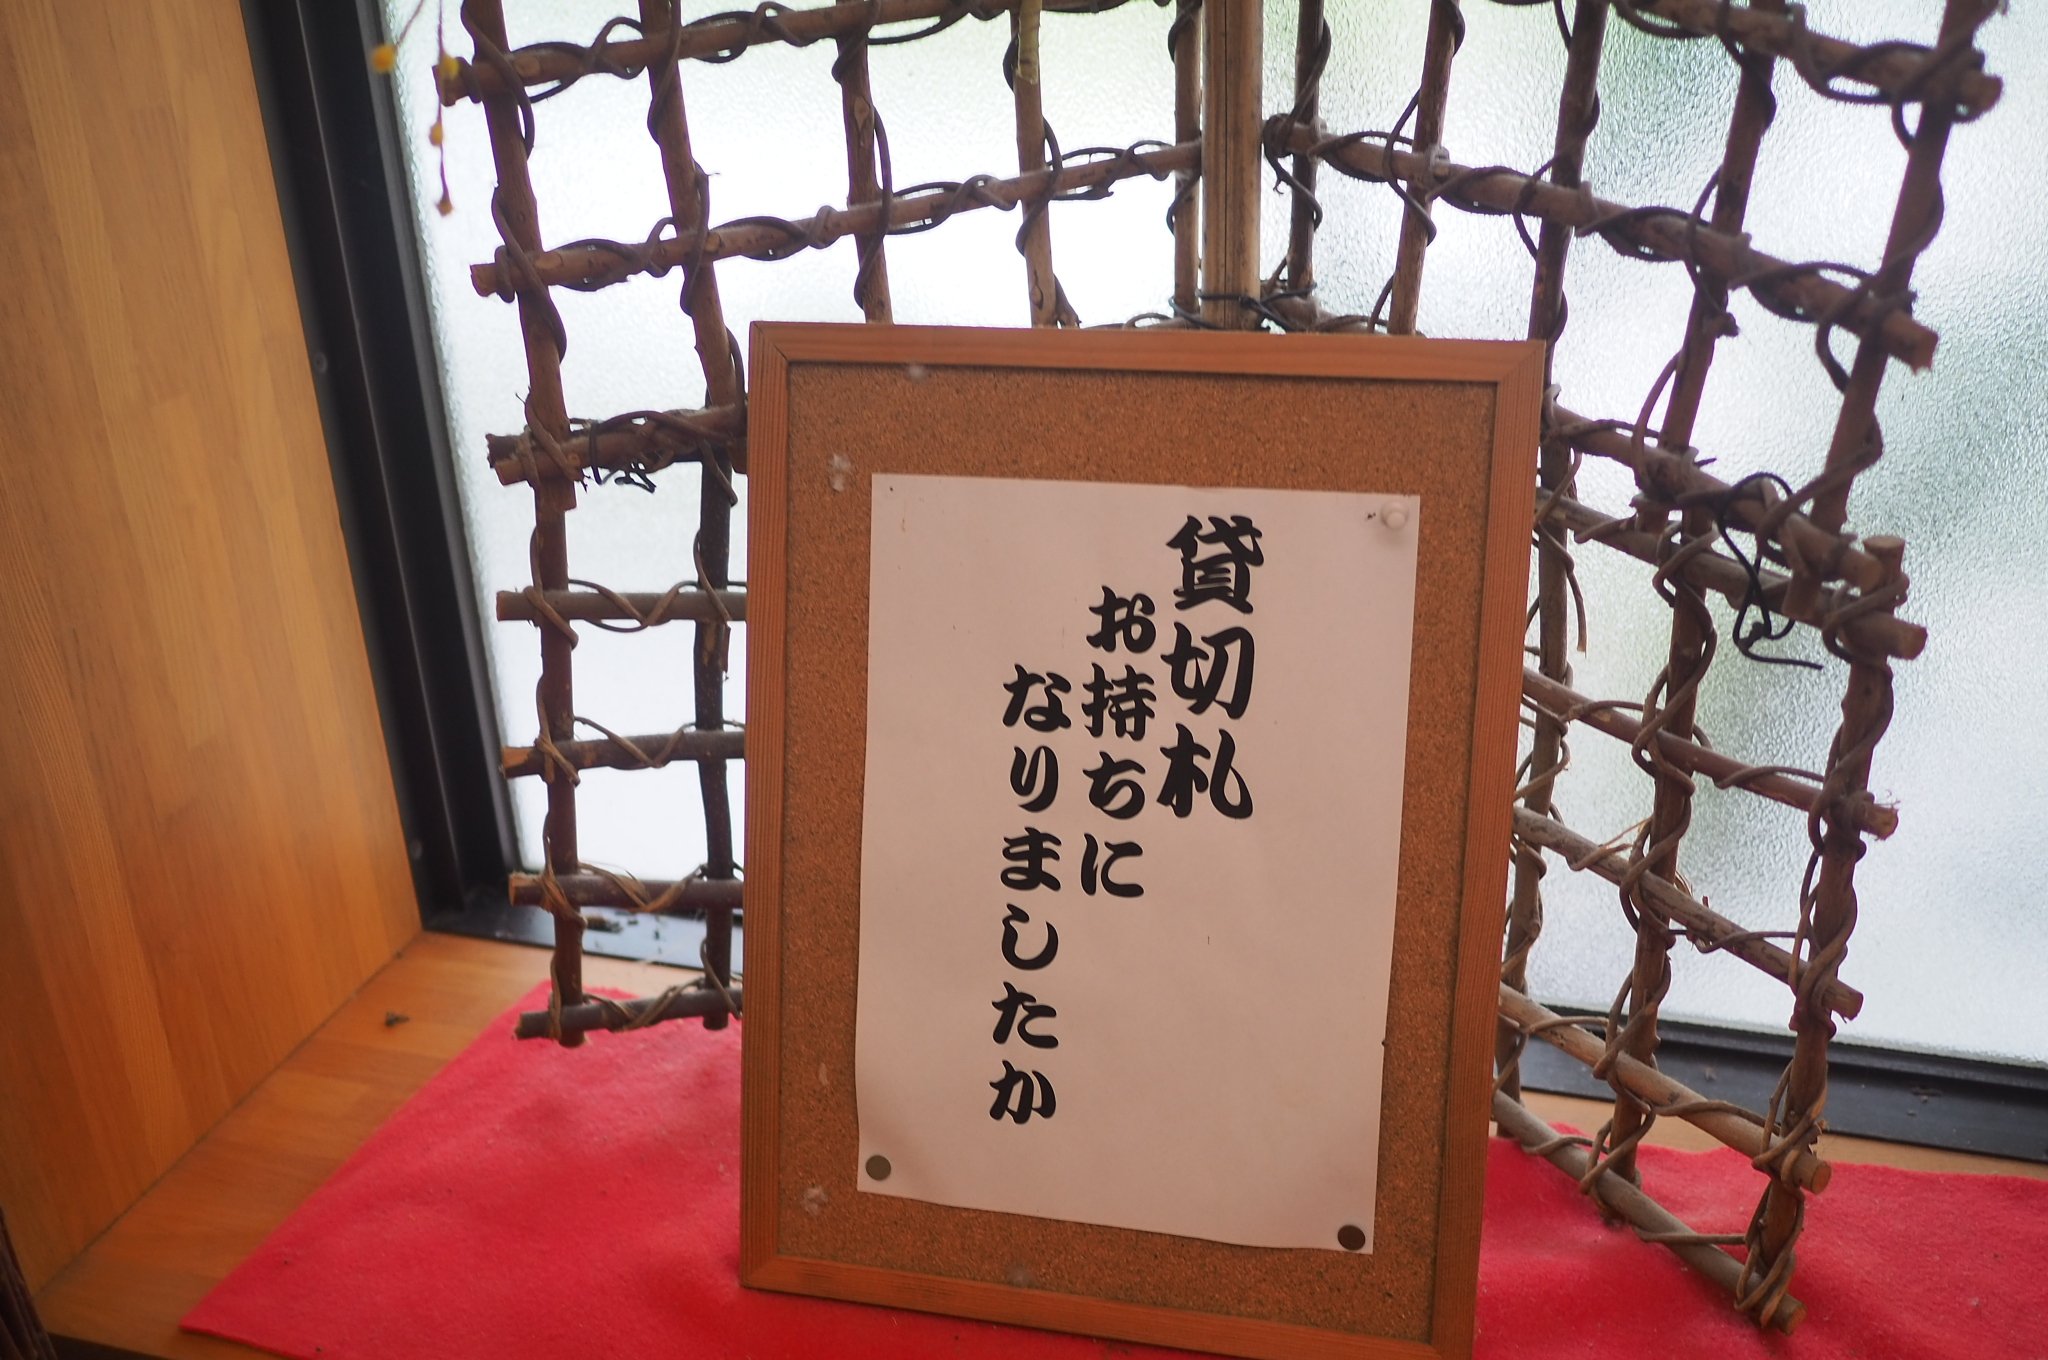 貸切札
お持ちに
なりましたか